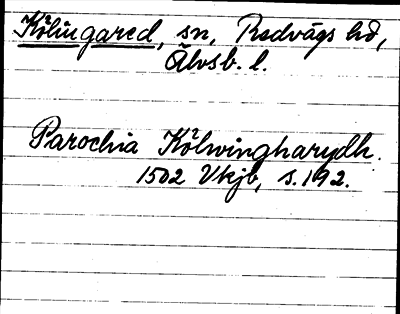 Kölingared, sn, Redvägs hd,
Älvsb. l.
Parochia Kölwingharydh.
1502 Vkjb, s. 192.